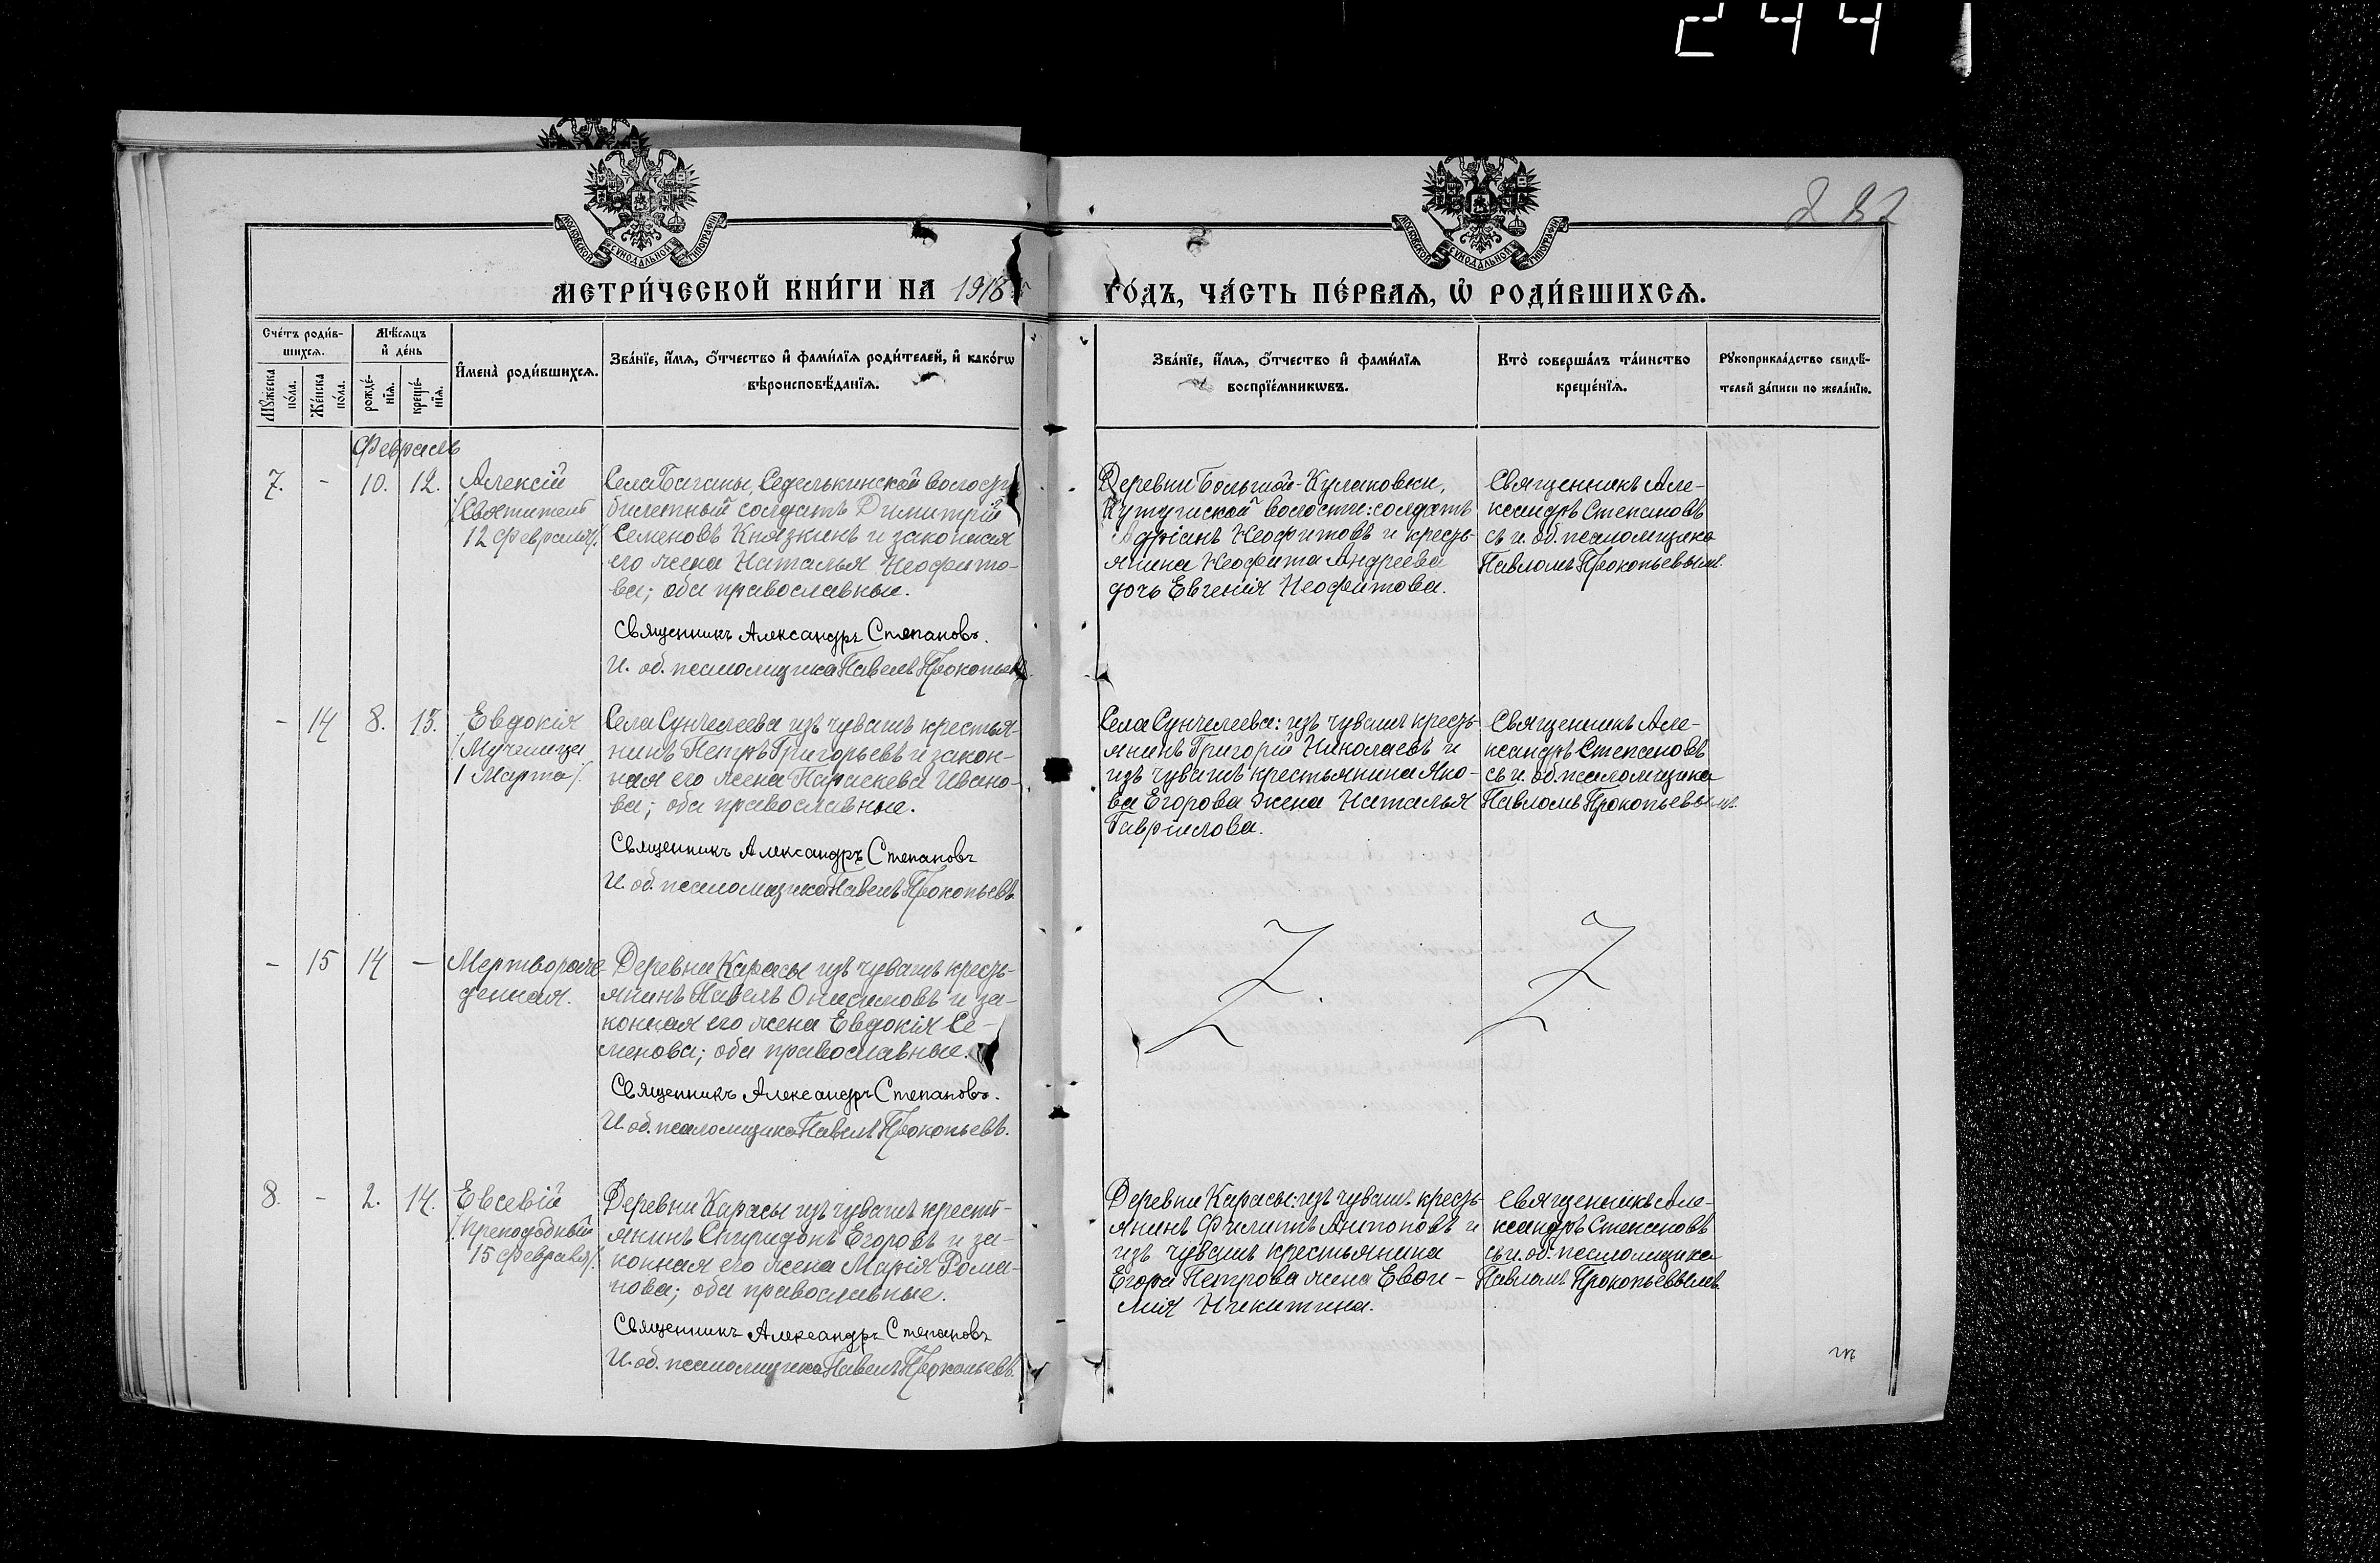 244
282
МОСКОВСКОЙ СУНОДАЛЬНОЙ ТИПОГРАФІИ
МОСКОВСКОЙ СУНОДАЛЬНОЙ ТИПОГРАФІИ
МЕТРИ́ЧЕСКОЙ КНИ́ГИ НА 1918
ГО́ДЪ, ЧА́СТЬ ПЕ́РВАѦ, Ѡ҆ РОДИ́ВШИХСѦ.
Сче́тъ роди́в-
шихсѧ.
Мꙋ́жеска по́ла.
Же́нска по́ла.
Мѣ́сѧцъ
и҆ де́нь
рожде́-
нїѧ.
креще́-
нїѧ.
И҆мена̀ роди́вшихсѧ.
Зва́нїе, и҆́мѧ, ѻ҆́тчество и҆ фами́лїѧ роди́телей, и҆ како́гѡ
вѣроисповѣ́данїѧ.
Зва́нїе, и҆́мѧ, ѻ҆́тчество и҆ фами́лїѧ
воспрїе́мникѡвъ.
Кто̀ соверша́лъ та́инство
креще́нїѧ.
Рꙋкоприкла́дство свидѣ́-
телей за́писи по жела́нїю.
Февраль
7. - 10. 12.
Алексій
/Святитель
12 февраля/.
Села Баганы, Седелькинской волости
билетный солдатъ Димитрій
Семеновъ Князкинъ и законная
его жена Наталья Неофито-
ва; оба православные.
Священникъ Александръ Степановъ.
И. об. псаломщика Павелъ Прокопьевъ.
Деревни Большой-Кулаковки,
Кутушской волости: солдатъ
Адріанъ Неофитовъ и кресть-
янина Неофита Андреева
дочь Евгенія Неофитова.
Священникъ Але-
ксандръ Степановъ
съ и. об. псаломщика
Павломъ Прокопьевымъ.
- 14 8. 13.
Евдокія
/Мученица
1 Марта/.
Села Сунчелеева изъ чувашъ крестья-
нинъ Петръ Григорьевъ и закон-
ная его жена Параскева Ивано-
ва; оба православные.
Священникъ Александръ Степановъ
И. об. псаломщика Павелъ Прокопьевъ.
Села Сунчелеева: изъ чувашъ кресть-
янинъ Григорій Николаевъ и
изъ чувашъ крестьянина Яко-
ва Егорова жена Наталья
Гавриилова.
Священникъ Але-
ксандръ Степановъ
съ и. об. псаломщика
Павломъ Прокопьевымъ.
- 15 14 -
Мертворож-
денная.
Деревни Карасы изъ чувашъ кресть-
янинъ Павелъ Онисимовъ и за-
конная его жена Евдокія Се-
менова; оба православные.
Священникъ Александръ Степановъ.
И. об. псаломщика Павелъ Прокопьевъ.
8. - 2. 14.
Евсевій
/Преподобный
15 февраля/.
Деревни Карасы изъ чувашъ кресть-
янинъ Спиридонъ Егоровъ и за-
конная его жена Марія Рома-
нова; оба православные.
Священникъ Александръ Степановъ
И. об. псаломщика Павелъ Прокопьевъ.
Деревни Карасы: изъ чувашъ кресть-
янинъ Филиппъ Антоновъ и
изъ чувашъ крестьянина
Егора Петрова жена Евфи-
мія Никитина.
Священникъ Але-
ксандръ Степановъ
съ и. об. псаломщика
Павломъ Прокопьевымъ.